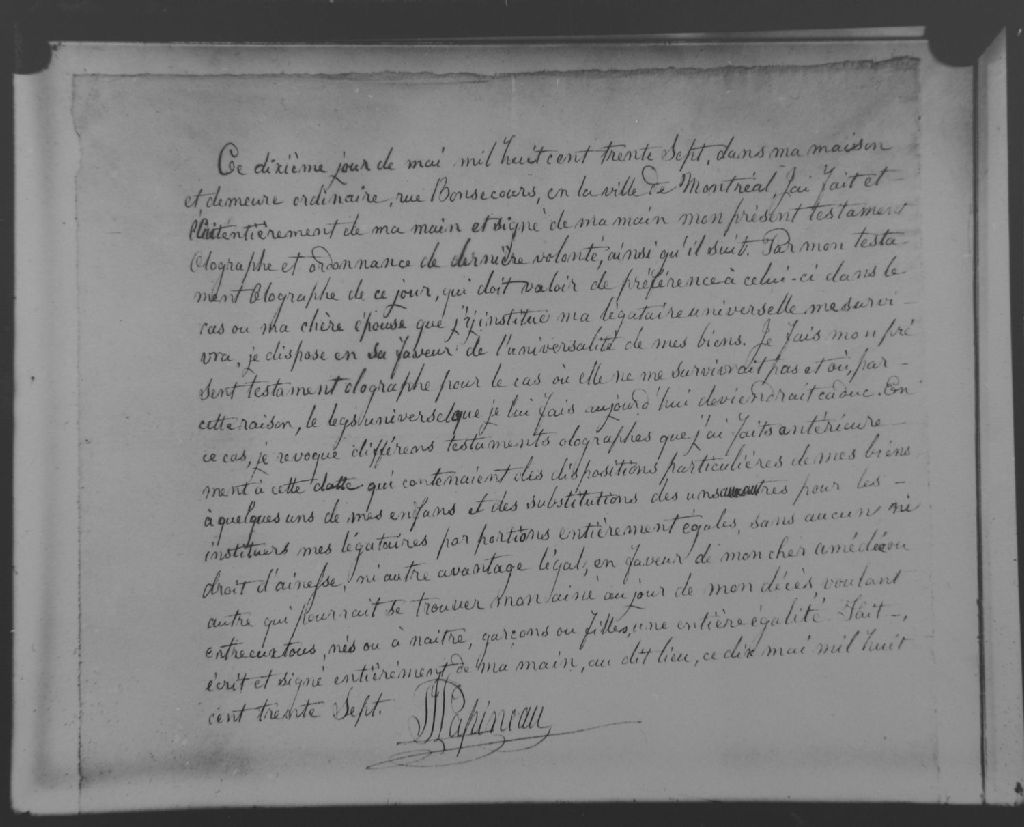 Ce dixième jour de mai mil huit cent trente Sept, dans ma maison
et demeure ordinaire, rue Bonsecours, en la ville de Montréal, J'ai fait et
écrit entièrement de ma main et signé de ma main mon présent testament
Olographe et ordonnance de dernière volonté, ainsi qu'il suit. Par mon testa-
ment Olographe de ce jour, qui doit valoir de préférence à celui-ci dans le
cas ou ma chère épouse que j'y institue ma légataire universelle me survi-
vra, je dispose en sa faveur de l'universalité de mes biens. Je fais mon pré
sent testament olographe pour le cas où elle ne me survivrait pas et où, par-
cette raison, le legs universel que je lui fais aujourd'hui deviendrait caduc. En
ce cas, je revoque différens testaments olographes que j'ai faits antérieure-
ment à cette datte qui contenaient des dispositions particulières de mes biens
à quelques uns de mes enfans et des substitutions des uns aux autres pour les-
instituers mes légataires par portions entièrement égales, sans aucun ni
droit d'ainesse, ni autre avantage légal, en faveur de mon cher amédée ou
autre qui pourrait se trouver mon ainé au jour de mon décès, voulant
entre eux tous, nés ou à naitre, garçons ou filles, une entière égalité. Fait-,
écrit et signé entièrement de ma main, au dit lieu, ce dix mai mil huit
cent trente Sept.
LJPapineau